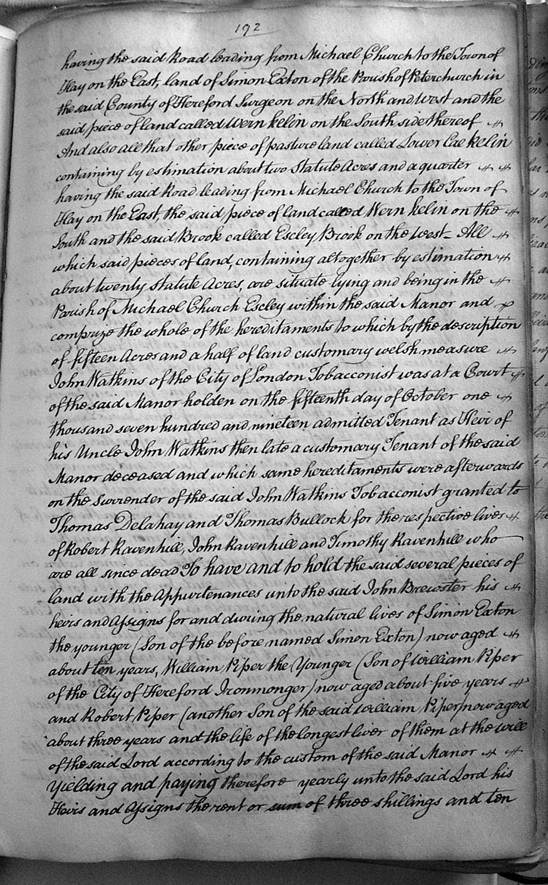 192
having the said Road leading from Michael Church to the Town of
Hay on the East, land of Simon Exton of the Parish of Peterchurch in
the said County of Hereford Surgeon on the North and West and the
said piece of land called Wern kelin on the South side thereof
And also all that other piece of pasture land called Lower Cae kelin
containing by estimation about two Statute Acres and a quarter
having the said Road leading from Michael Church to the Town of
Hay on the East, the said piece of land called Wern kelin on the
South and the said Brook called Escley Brook on the West. All
which said pieces of land, containing altogether by estimation
about twenty statute Acres, are situate lying and being in the
Parish of Michael Church Escley within the said Manor and
comprize the whole of the hereditaments to which by the description
of fifteen Acres and a half of land customary welsh measure
John Watkins of the City of London Tobacconist was at a Court
of the said Manor holden on the fifteenth day of October one
thousand seven hundred and nineteen admitted Tenant as Heir of
his Uncle John Watkins then late a customary Tenant of the said
Manor deceased and which same hereditaments were afterwards
on the Surrender of the said John Watkins Tobacconist granted to
Thomas Delahay and Thomas Bullock for the respective lives
of Robert Ravenhill, John Ravenhill and Timothy Ravenhill who
are all since dead To have and to hold the said several pieces of
land with the Appurtenances unto the said John Brewster his
heirs and Assigns for and during the natural lives of Simon Exton
the younger (Son of the before named Simon Exton) now aged
about ten years, William Piper the Younger (Son of William Piper
of the City of Hereford Ironmonger) now aged about five years
and Robert Piper (another Son of the said William Piper) now aged
about three years and the life of the longest liver of them at the will
of the said Lord according to the custom of the said Manor
Yielding and paying therefore yearly unto the said Lord his
Heirs and Assigns the rent or sum of three shillings and ten